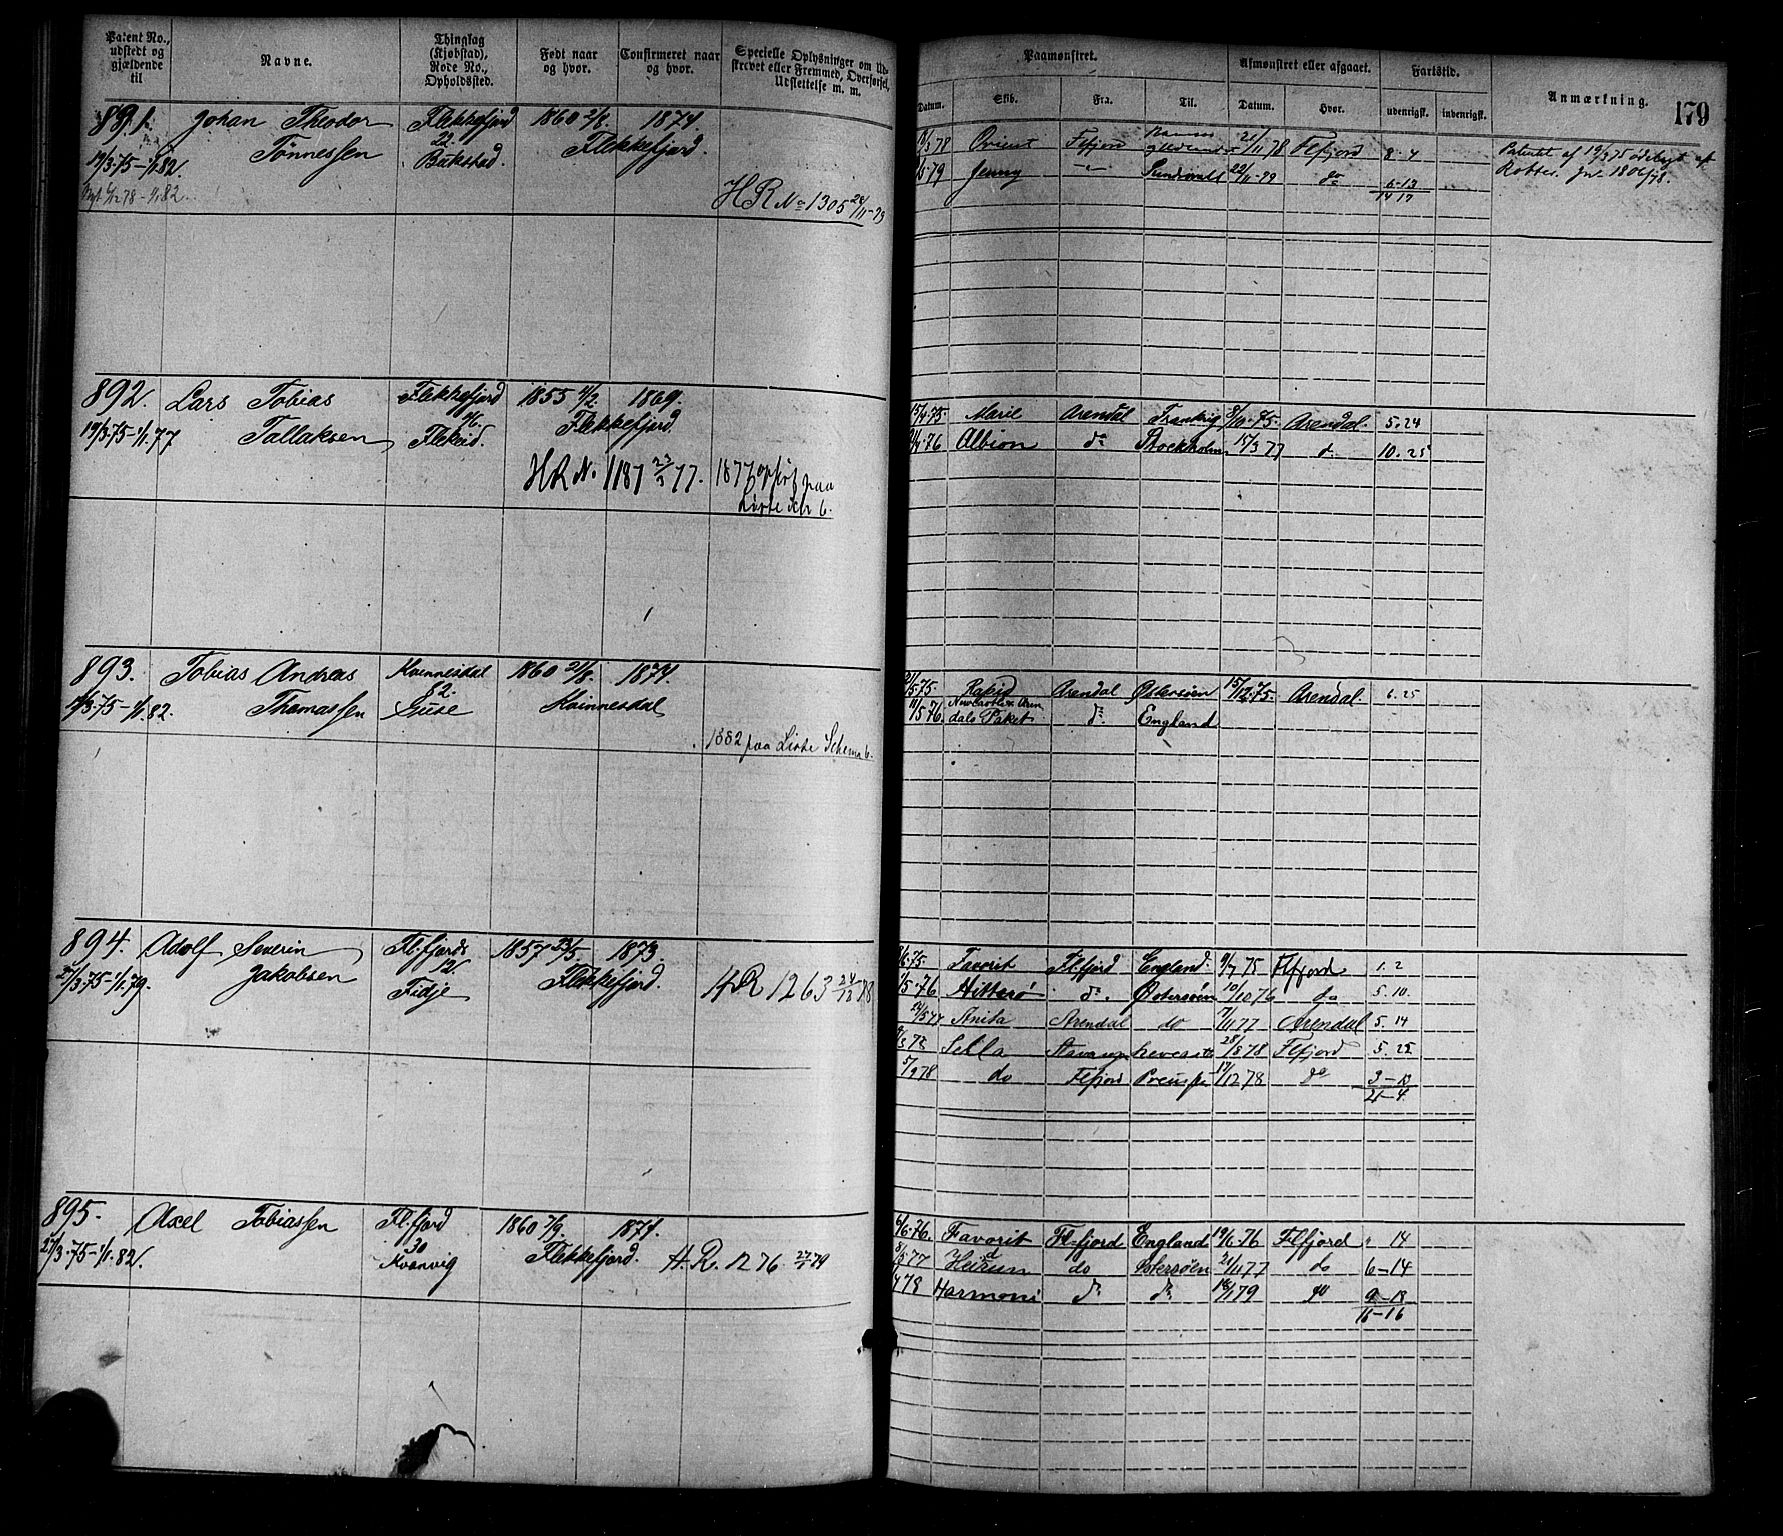 Patent No., udstedt og gjældende til
Navne.
Thinglag (Kjøbstad), Rode No., Opholdssted.
Født naar og hvor.
Confirmeret naar og hvor.
Specielle Oplysninger om Ud-skrevet eller Fremmed, Overførsel, Udslettelse m. m.
Paamønstret.
Afmønstret eller afgaaet.
Fartstid.
Anmærkning.
179
Datum.
Skib.
Fra.
Til.
Datum.
Hvor.
udenrigsk.
indenrigsk.
891. Johan Theodor Flekkefjord 1860 1874.
Tønnessen 22. Bukstad. Flekkefjord.
19/3.75-1/1.82.
78 - 1/1 82.
HR No 1305 24/11-79
78 Orient Fl.fjord 21/11 78 Fl.fjord 8-4
79 Jenny Sundsvall 22/11-79 do 6-13
14 17
Patentet af 19/3 75 ødelagt af
Rotter. Jnr 1806/78.
892. Lars Tobias Flekkefjord 1855 1869.
19/3.75-1/1.77 Tallaksen Flekkefjord.
HR N. 1187 23/3 77. 1877 opført paa
Liste 6.
15/4.75 Marie Arendal 8/10.75 Arendal. 5.24
76 Albion do Stockholm 15/3 77 do 10.25
893. Tobias Andreas Kvinnesdal 1860 21/8. 1874.
19/3.75-1/1.82. Thomassen 82. Kvinnesdal
1882 paa Liste Schema 6.
21/5.75 Rapid Arendal Østersøen 15/12.75. Arendal. 6.25
11/5 76 Newcastle Aren
dals Paket do. England
894. Adolf Severin Fl.fjord 1857 23/5. 1873.
27/3.75-1/1.79. Jakobsen 12. Fidje Flekkefjord.
HR 1263 24/12 78
75 Favorit Fl.fjord England. 9/7 75 Flfjord 1.2
1/5.76 Hitterø do. Østersøen 10/10 76 do 5.10.
77 Anita Arendal do 7/11 77 Arendal 5.14
78 Sella 28/8 78 Flfjord 5.22
5/9 78 do Flfjord 17/12 78 do 3-13
21-4.
895. Axel Tobiassen Fl.fjord 1860 7/9. 1874.
27/3.75-1/1.82. 30 Kvanvig Flekkefjord.
H.R. 1276 79
6/6.76. Favorit Fl.fjord England 19/6.76 Flfjord " 14
8/5 77 do Østersøen 21/11 77 do 6-14
78 Harmoni do do 18/1 79 do 9-18
16-16